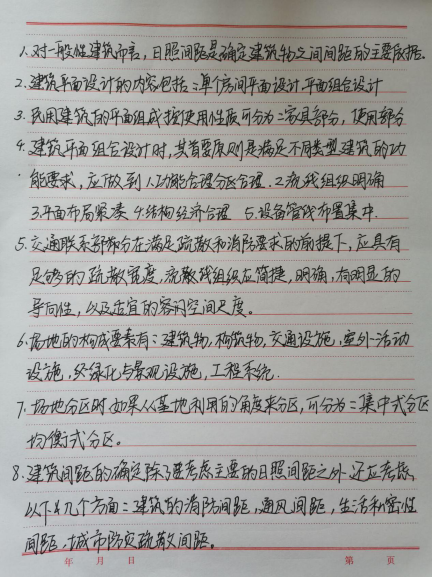 1.对一般性建筑而言，日照间距是确定建筑物之间间距的主要依据.
2.建筑平面设计的内容包括:单个房间平面设计平面组合设计
3.民用建筑的平面组成按使用性质可分为:家具部分，使用部分
4.建筑平面组合设计时，其首要原则是满足不同类型建筑的功
能要求，应做到1.功能合理分区合理.2.流线组织明确
3.平面布局紧凑 4.结构经济合理 5.设备管线布置集中.
5.交通联系部分在满足疏散和消防要求的前提下，应具有
足够的疏散宽度，流散线组织应简捷，明确，有明显的
导向性，以及适宜的容间空间尺度。
6.场地的构成要素有:建筑物，构筑物，交通设施，室外活动
设施，绿化与景观设施，工程系统.
7.场地分区时如果从基地利用的角度来分区，可分为:集中式分区
均衡式分区。
8.建筑间距的确定除了要考虑主要的日照间距之外还应考虑
以下几个方面:建筑的消防间距，通风间距，生活私密性
间距，城市防灾疏散间距。
年 月 日 第 页